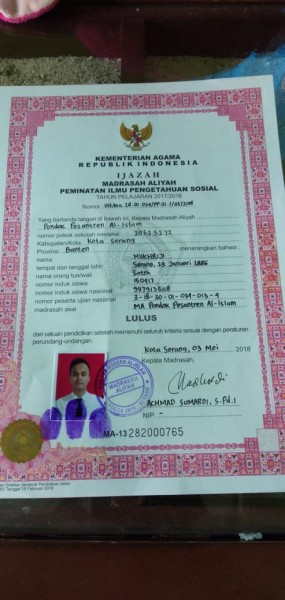 KEMENTERIAN AGAMA
REPUBLIK INDONESIA
IJAZAH
MADRASAH ALIYAH
PEMINATAN ILMU PENGETAHUAN SOSIAL
TAHUN PELAJARAN 2017/2018
Nomor:
Yang bertanda tangan di bawah ini, Kepala Madrasah Aliyah
Pondok Pesantren Al-Islam
nomor pokok sekolah nasional
Kabupaten/Kota Kota Serang
Provinsi Banten menerangkan bahwa :
nama MUKHRIJI
tempat dan tanggal lahir Serang, 23 Januari
nama orang tua/wali
nomor induk siswa
nomor induk siswa nasional
nomor peserta ujian nasional 3-18-30-01-034-013-4
madrasah asal MA Pondok Pesantren Al-Islam
LULUS
dari satuan pendidikan setelah memenuhi seluruh kriteria sesuai dengan peraturan
perundang-undangan.
Kota Serang, 03 Mei 2018
Kepala Madrasah,
MADRASAH
ALIYAH
ACHMAD SUMARDI, S.Pd.I
NIP -
MA-13 282000765